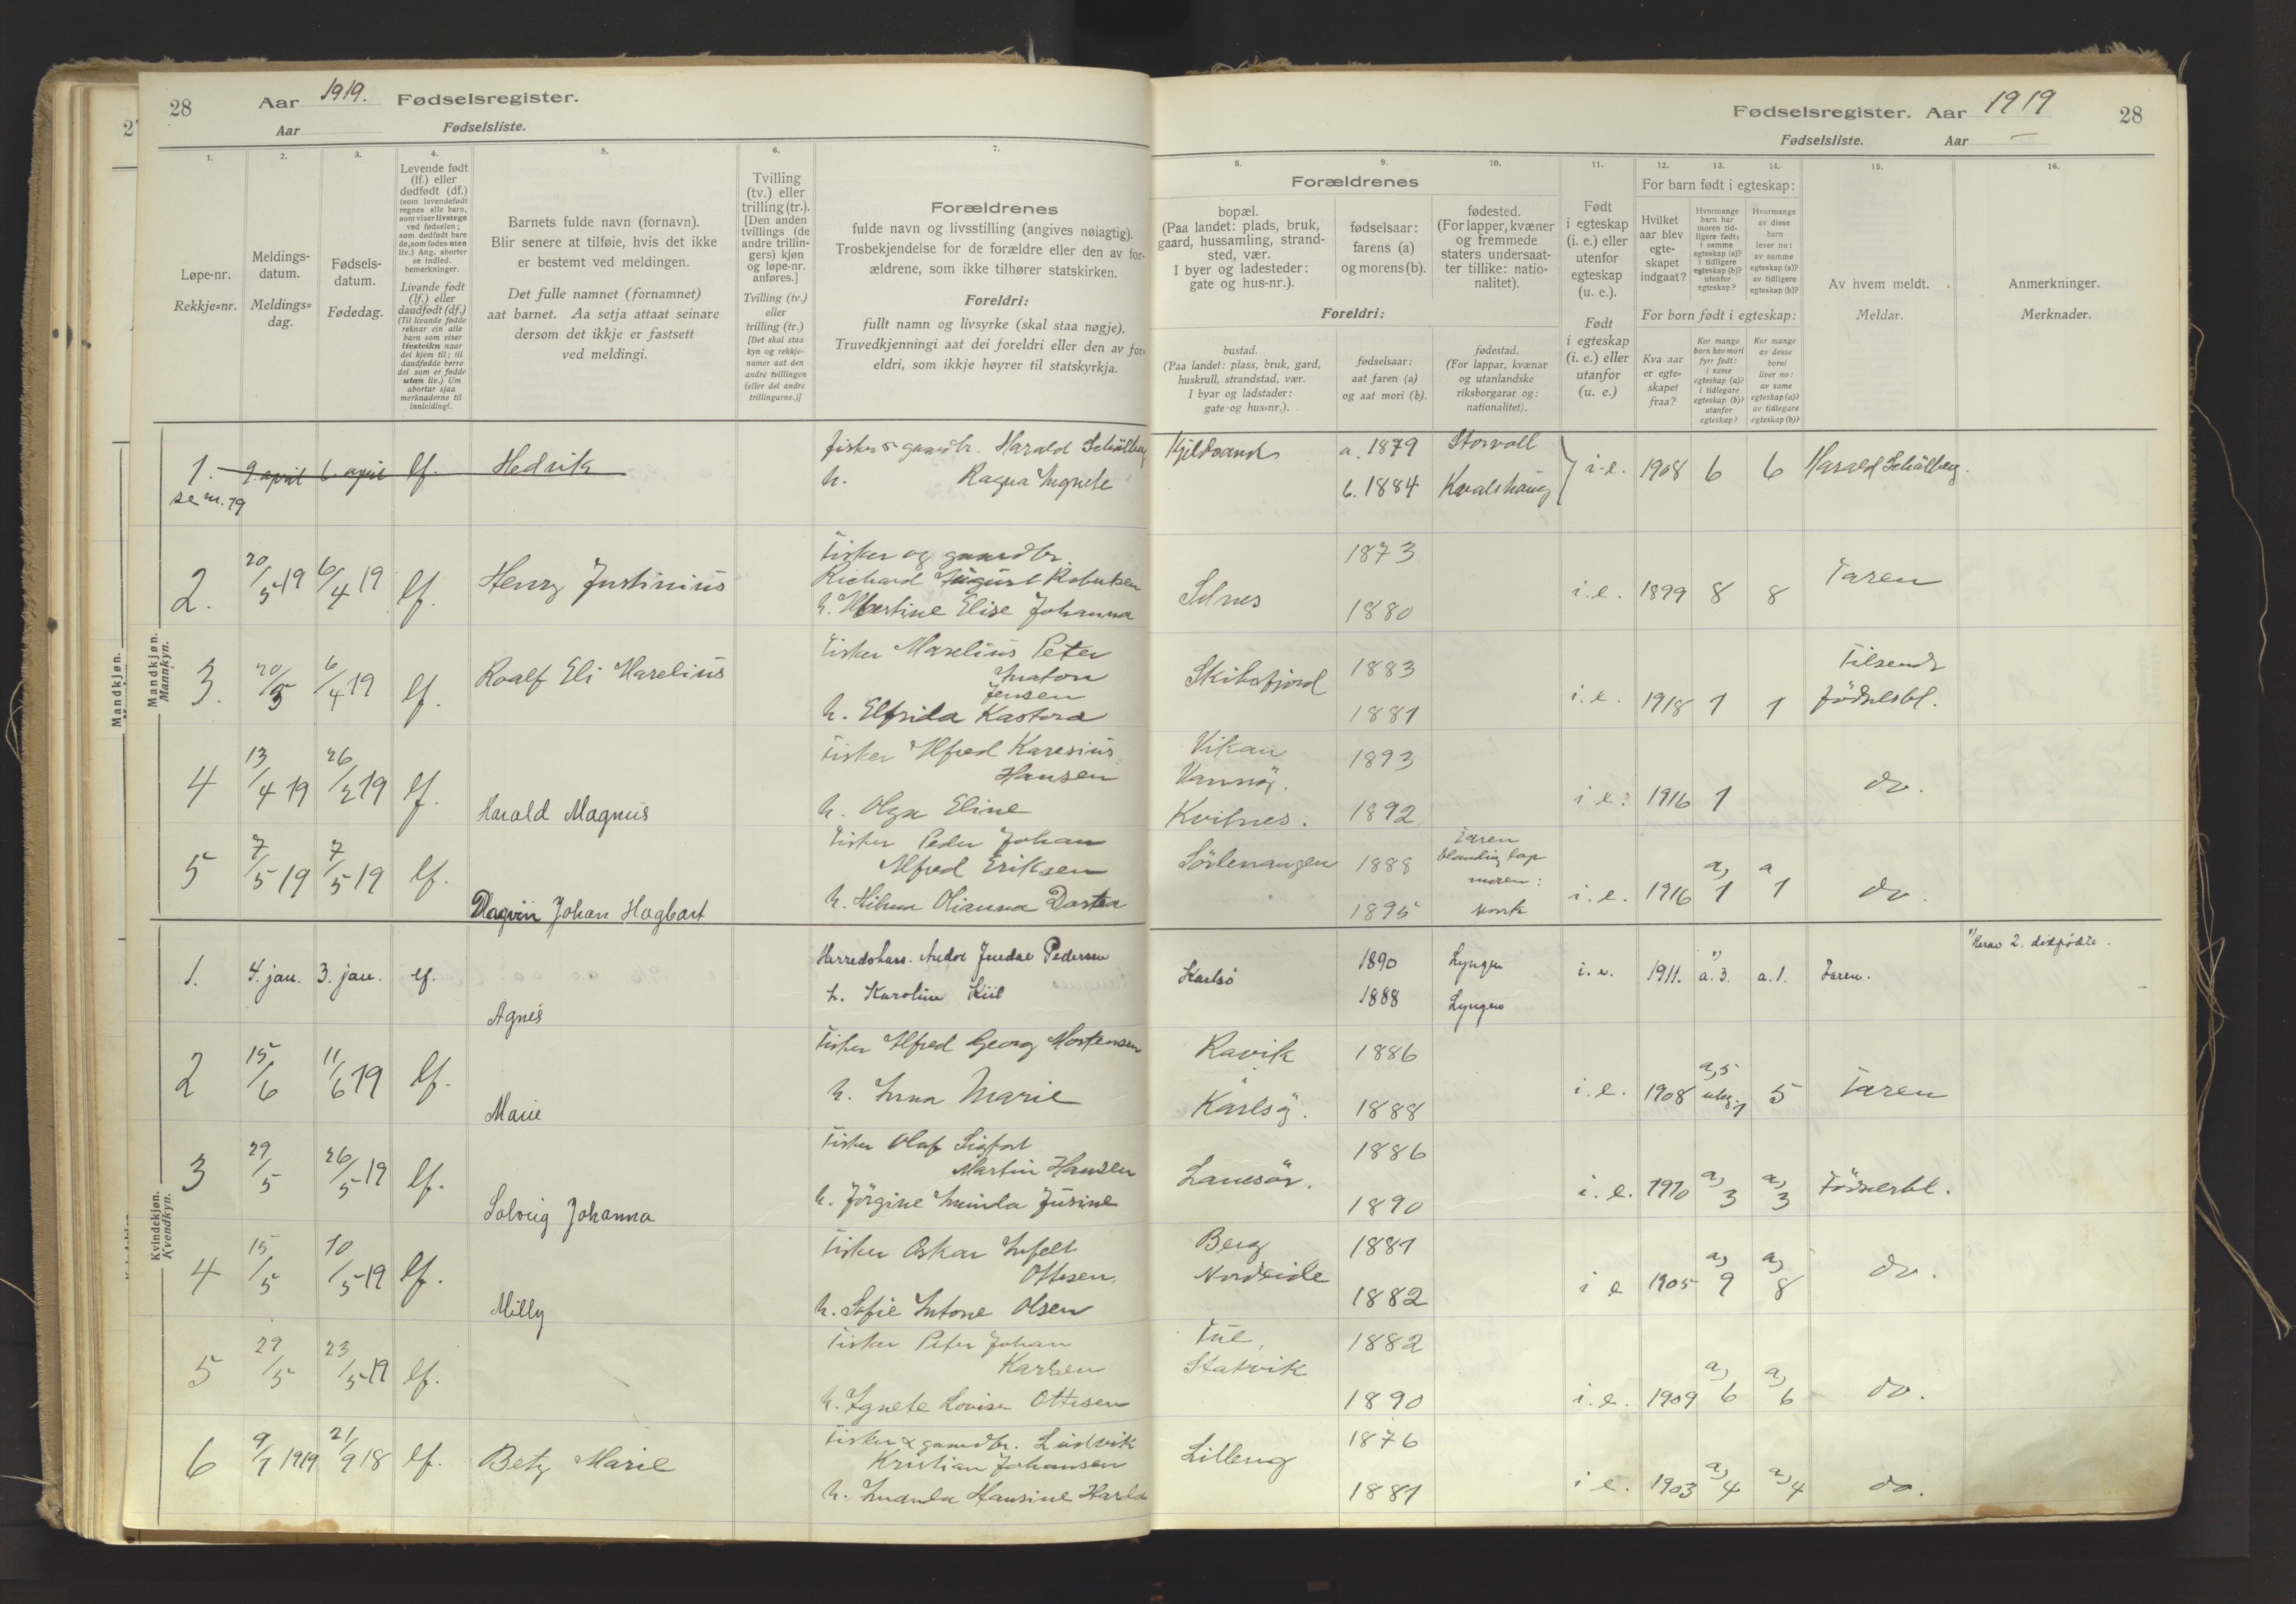 28
Aar 1919. Fødselsregister.
Aar Fødselsliste.
1.
2.
3.
4.
5.
6.
7.
Løpe-nr.
Rekkje=nr.
Meldings-
datum.
Meldings=
dag.
Fødsels-
datum.
Fødedag.
Levende født
(lf.) eller
dødfødt (df.)
(som levendefødt
regnes alle barn,
som viser livstegn
ved fødselen;
som dødfødt bare
de, som fødes uten
liv.) Ang. aborter
se indled.
bemerkninger.
Livande født
(lf.) eller
daudfødt (df.)
(Til livande fødde
reknar ein alle
barn som viser
livsteikn naar
dei kjem til; til
daudfødde berre
dei som er fødde
utan liv.) Um
abortar sjaa
merknaderne til
innleidingi.
Barnets fulde navn (fornavn).
Blir senere at tilføie, hvis det ikke
er bestemt ved meldingen.
Det fulle namnet (fornamnet)
aat barnet. Aa setja attaat seinare
dersom det ikkje er fastsett
ved meldingi.
Tvilling
(tv.) eller
trilling (tr.).
[Den anden
tvillings (de
andre trillin-
gers) kjøn
og løpe-nr.
anføres.]
Tvilling (tv.)
eller
trilling (tr.)
[Det skal staa
kyn og rekkje-
numer aat den
andre tvillingen
(eller dei andre
trillingarne.)]
Forældrenes
fulde navn og livsstilling (angives nøiagtig).
Trosbekjendelse for de forældre eller den av for-
ældrene, som ikke tilhører statskirken.
Foreldri:
fullt namn og livsyrke (skal staa nøgje).
Truvedkjenningi aat dei foreldri eller den av for-
eldri, som ikkje høyrer til statskyrkja.
Mandkjøn.
Mannkyn.
1. 9 april 6. april lf. Hedvik
fisker & gaardbr. Harald Schölberg
h. Ragna Agnete
2. 20/5 19 6/4 19 lf. Henry Justinius
Fisker og gaardbr.
Richard August Robertsen
h. Albertine Elise Johanna
3. 20/5 6/4 19 lf. Roalf Eli Marelius
Fisker Marelius Peter
Anton
Jensen
h. Elfrida Kastora
4 13/4 19 26/2 19 lf. Harald Magnus
Fisker Alfred Karesius
Hansen
h. Olga Eline
5 7/5 19 7/5 19 lf. Dagvin Johan Hagbart
Fisker Peder Johan
Alfred Eriksen
h. Hilma Olianna Dortea
Kvindekjøn.
Kvendkyn.
1. 4. jan. 3. jan. lf. Agnes
Herredskass. Andor Jendal Pedersen
h. Karoline Kiil
2 15/6 11/6 19 lf. Marie
Fisker Alfred Georg Mortensen
h. Anna Marie
3 29/5 26/5 19 lf. Solveig Johanna
Fisker Olaf Sigfort
Martin Hansen
h. Jörgine Aminda Jusine
4 15/5 10/5 19 lf. Milly
Fisker Oskar Anfelt
Ottesen
h. Sofie Antone Olsen
5 29/5 23/5 19 lf.
Fisker Peter Johan
Karlsen
h. Agnete Lovise Ottesen
6 9/7 1919 21/9 18 lf. Betzy Marie
Fisker & gaardbr. Ludvik
Kristian Johansen
h. Amanda Hansine Harda
Fødselsregister. Aar 1919 28
Fødselsliste. Aar —
8.
9.
10.
11.
12.
13.
14.
15.
16.
Forældrenes
bopæl.
(Paa landet: plads, bruk,
gaard, hussamling, strand-
sted, vær.
I byer og ladesteder:
gate og hus-nr.).
fødselsaar:
farens (a)
og morens (b).
fødested.
(For lapper, kvæner
og fremmede
staters undersaat-
ter tillike: natio-
nalitet).
Foreldri:
bustad.
(Paa landet: plass, bruk, gard,
huskrull, strandstad, vær.
I byar og ladstader:
gate-og hus=nr.).
fødselsaar:
aat faren (a)
og aat mori (b).
fødestad.
(For lappar, kvænar
og utanlandske
riksborgarar og:
nationalitet).
Født
i egteskap
(i. e.) eller
utenfor
egteskap
(u. e.).
Født
i egteskap
(i. e.) eller
utanfor
(u. e.)
For barn født i egteskap:
Hvilket
aar blev
egte-
skapet
indgaat?
Hvormange
barn har
moren tid-
ligere født:
i samme
egteskap (a)?
i tidligere
egteskap (b)?
utenfor
egteskap?
Hvormange
av disse
barn
lever nu:
av samme
egteskap (a)?
av tidligere
egteskap (b)?
For born født i egteskap:
Kva aar
er egte=
skapet
fraa?
Kor mange
born hev mori
fyrr født:
i same
egteskap (a)?
i tidlegare
egteskap (b)?
utanfor
egteskap?
Kor mange
av desse
borni
liver no:
av same
egteskap (a)?
av tidlegare
egteskap (b)?
Av hvem meldt.
Meldar.
Anmerkninger.
Merknader.
Kjildsand a. 1879 Storvoll
b. 1884 Kvalshaug i. e. 1908 6 6 Harald Schölberg.
1873
Selnes 1880 i. e. 1899 8 8 Faren
Skibsfjord 1883
1881 i. e. 1918 1 1 Tilsendt
födselsbl.
Vikan
Vannöy. 1893
Kvitnes. 1892 i e. 1916 1 do.
Sörlenangen 1888 Faren
blanding lap
moren:
1895 norsk i. e. 1916 a, 1 a 1 do.
Karlsö 1890 Lyngen
1888 Lyngen i. e. 1911. a. 3. a. 1. Faren.
Ravik 1886
Karlsöy. 1888 i. e. 1908 a, 5 5 Faren
Lanesör. 1886
1890 i. e. 1910 a, 3 a, 3 Födselsbl.
Berg 1881
Nordeide 1882 i e 1905 a, 9 a, 8 do.
1882
Statvik
1890 i. e. 1909 a, 6 a, 6 do.
Lilleng 1876
1881 i e. 1903 a, 4 a, 4 do.